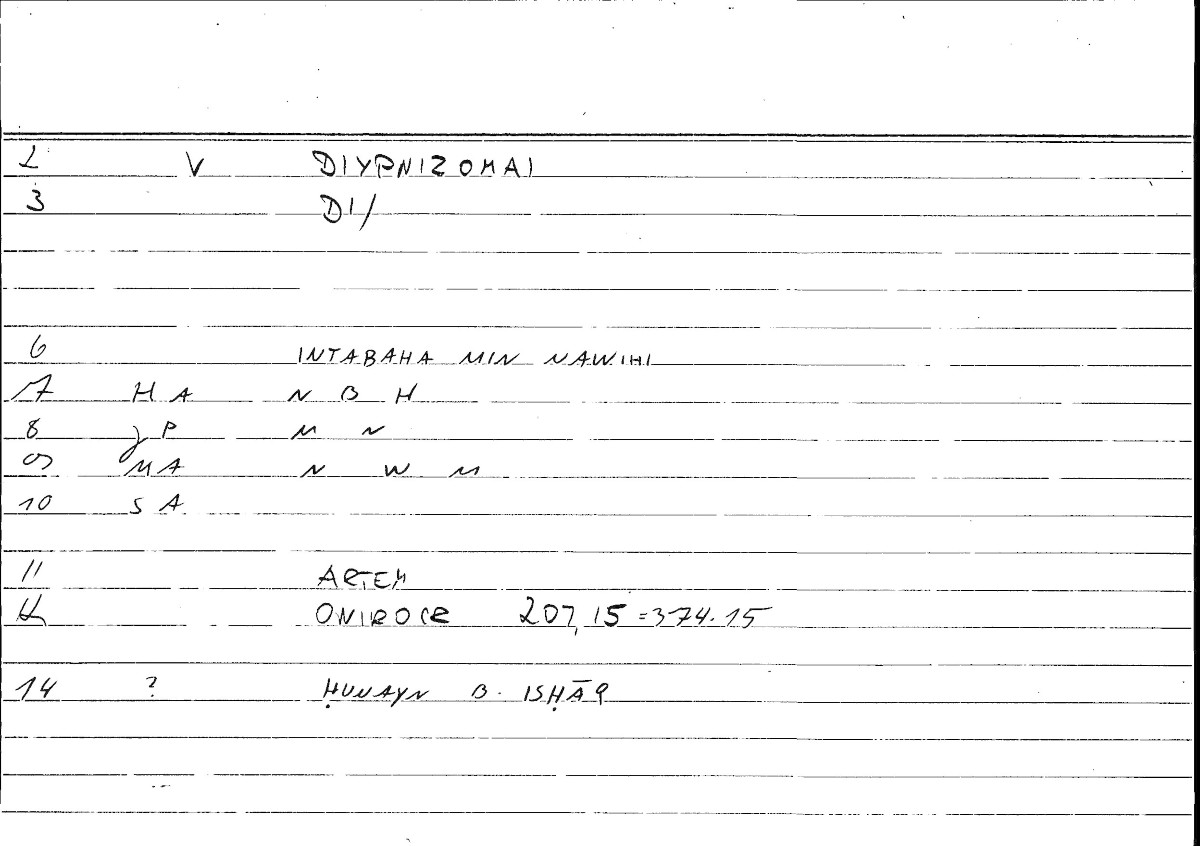 2 V DIYPNIZOMAI
3 DI/
6 INTABAHA MIN NAWIHI
7 HA N B H
8 JP M N
9 MA N W M
10 SA
11 ARTEM
12 ONIROCR 207,15 =374.15
14 ? ḤUNAYN B. ISḤĀQ